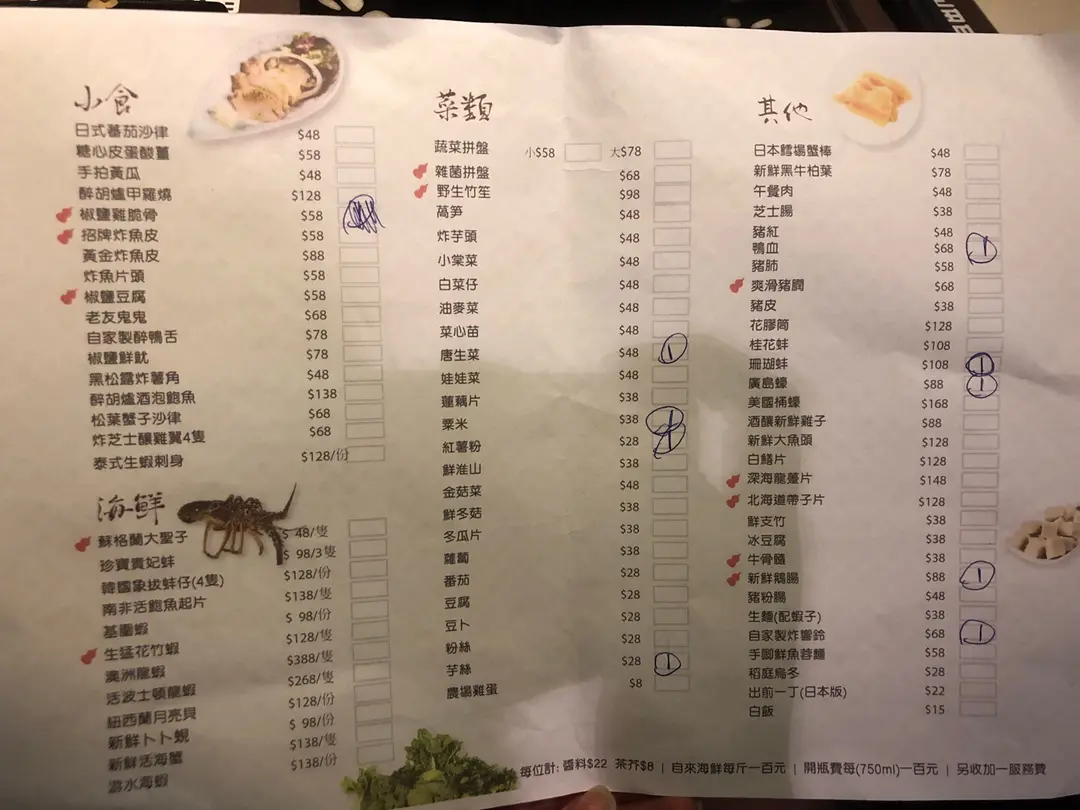 小食
日式蕃茄沙律 $48
糖心皮蛋酸薑 $58
手拍黃瓜 $48
醉胡爐甲羅燒 $128
椒鹽雞脆骨 $58
招牌炸魚皮 $58
黃金炸魚皮 $88
炸魚片頭 $58
椒鹽豆腐 $58
老友鬼鬼 $68
自家製醉鴨舌 $78
椒鹽鮮魷 $78
黑松露炸薯角 $48
醉胡爐酒泡鮑魚 $138
松葉蟹子沙律 $68
炸芝士釀雞翼4隻 $68
泰式生蝦刺身 $128/份
海鮮
蘇格蘭大聖子 $ 48/隻
珍寶貴妃蚌 $ 98/3隻
韓國象拔蚌仔(4隻) $128/份
南非活鮑魚起片 $138/隻
基圍蝦 $ 98/份
生猛花竹蝦 $128/隻
澳洲龍蝦 $388/隻
活波士頓龍蝦 $268/隻
紐西蘭月亮貝 $128/份
新鮮卜卜蜆 $ 98/份
新鮮活海蟹 $138/隻
游水海蝦 $138/份
菜類
蔬菜拼盤 小$58 大$78
雜菌拼盤 $68
野生竹笙 $98
萵筍 $48
炸芋頭 $48
小棠菜 $48
白菜仔 $48
油麥菜 $48
菜心苗 $48
唐生菜 $48 1
娃娃菜 $48
蓮藕片 $38
粟米 $38 1
紅薯粉 $28 1
鮮淮山 $38
金菇菜 $48
鮮冬菇 $38
冬瓜片 $38
蘿蔔 $38
番茄 $28
豆腐 $28
豆卜 $28
粉絲 $28
芋絲 $28 1
農場雞蛋 $8
其他
日本鱈場蟹棒 $48
新鮮黑牛柏葉 $78
午餐肉 $48
芝士腸 $38
豬紅 $48
鴨血 $68 1
豬肺 $58
爽滑豬膶 $68
豬皮 $38
花膠筒 $128
桂花蚌 $108
珊瑚蚌 $108 1
廣島蠔 $88 1
美國桶蠔 $168
酒釀新鮮雞子 $88
新鮮大魚頭 $128
白鱔片 $128
深海龍躉片 $148
北海道帶子片 $128
鮮支竹 $38
冰豆腐 $38
牛骨髓 $38
新鮮鵝腸 $88 1
豬粉腸 $48
生麵(配蝦子) $38
自家製炸響鈴 $68 1
手唧鮮魚蓉麵 $58
稻庭烏冬 $28
出前一丁(日本版) $22
白飯 $15
每位計: 醬料$22 茶芥$8 | 自來海鮮每斤一百元 | 開瓶費每(750ml)一百元 | 另收加一服務費